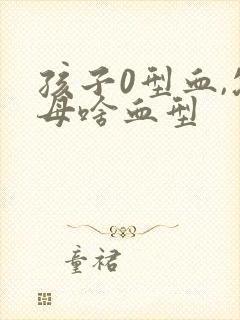 孩子0型血,
母啥血型
童裙